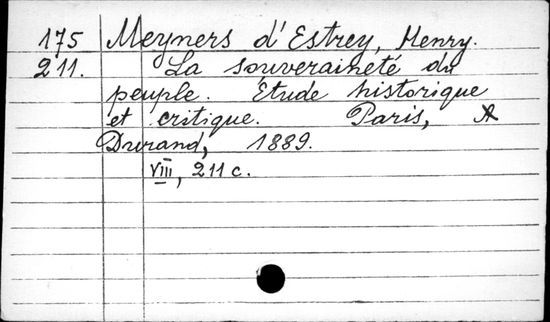 175 Meyners d'Estrey, Henry.
211. La souveraineté du
peuple. Étude historique
et critique. Paris, A
Durand, 1889.
VIII, 211 c.